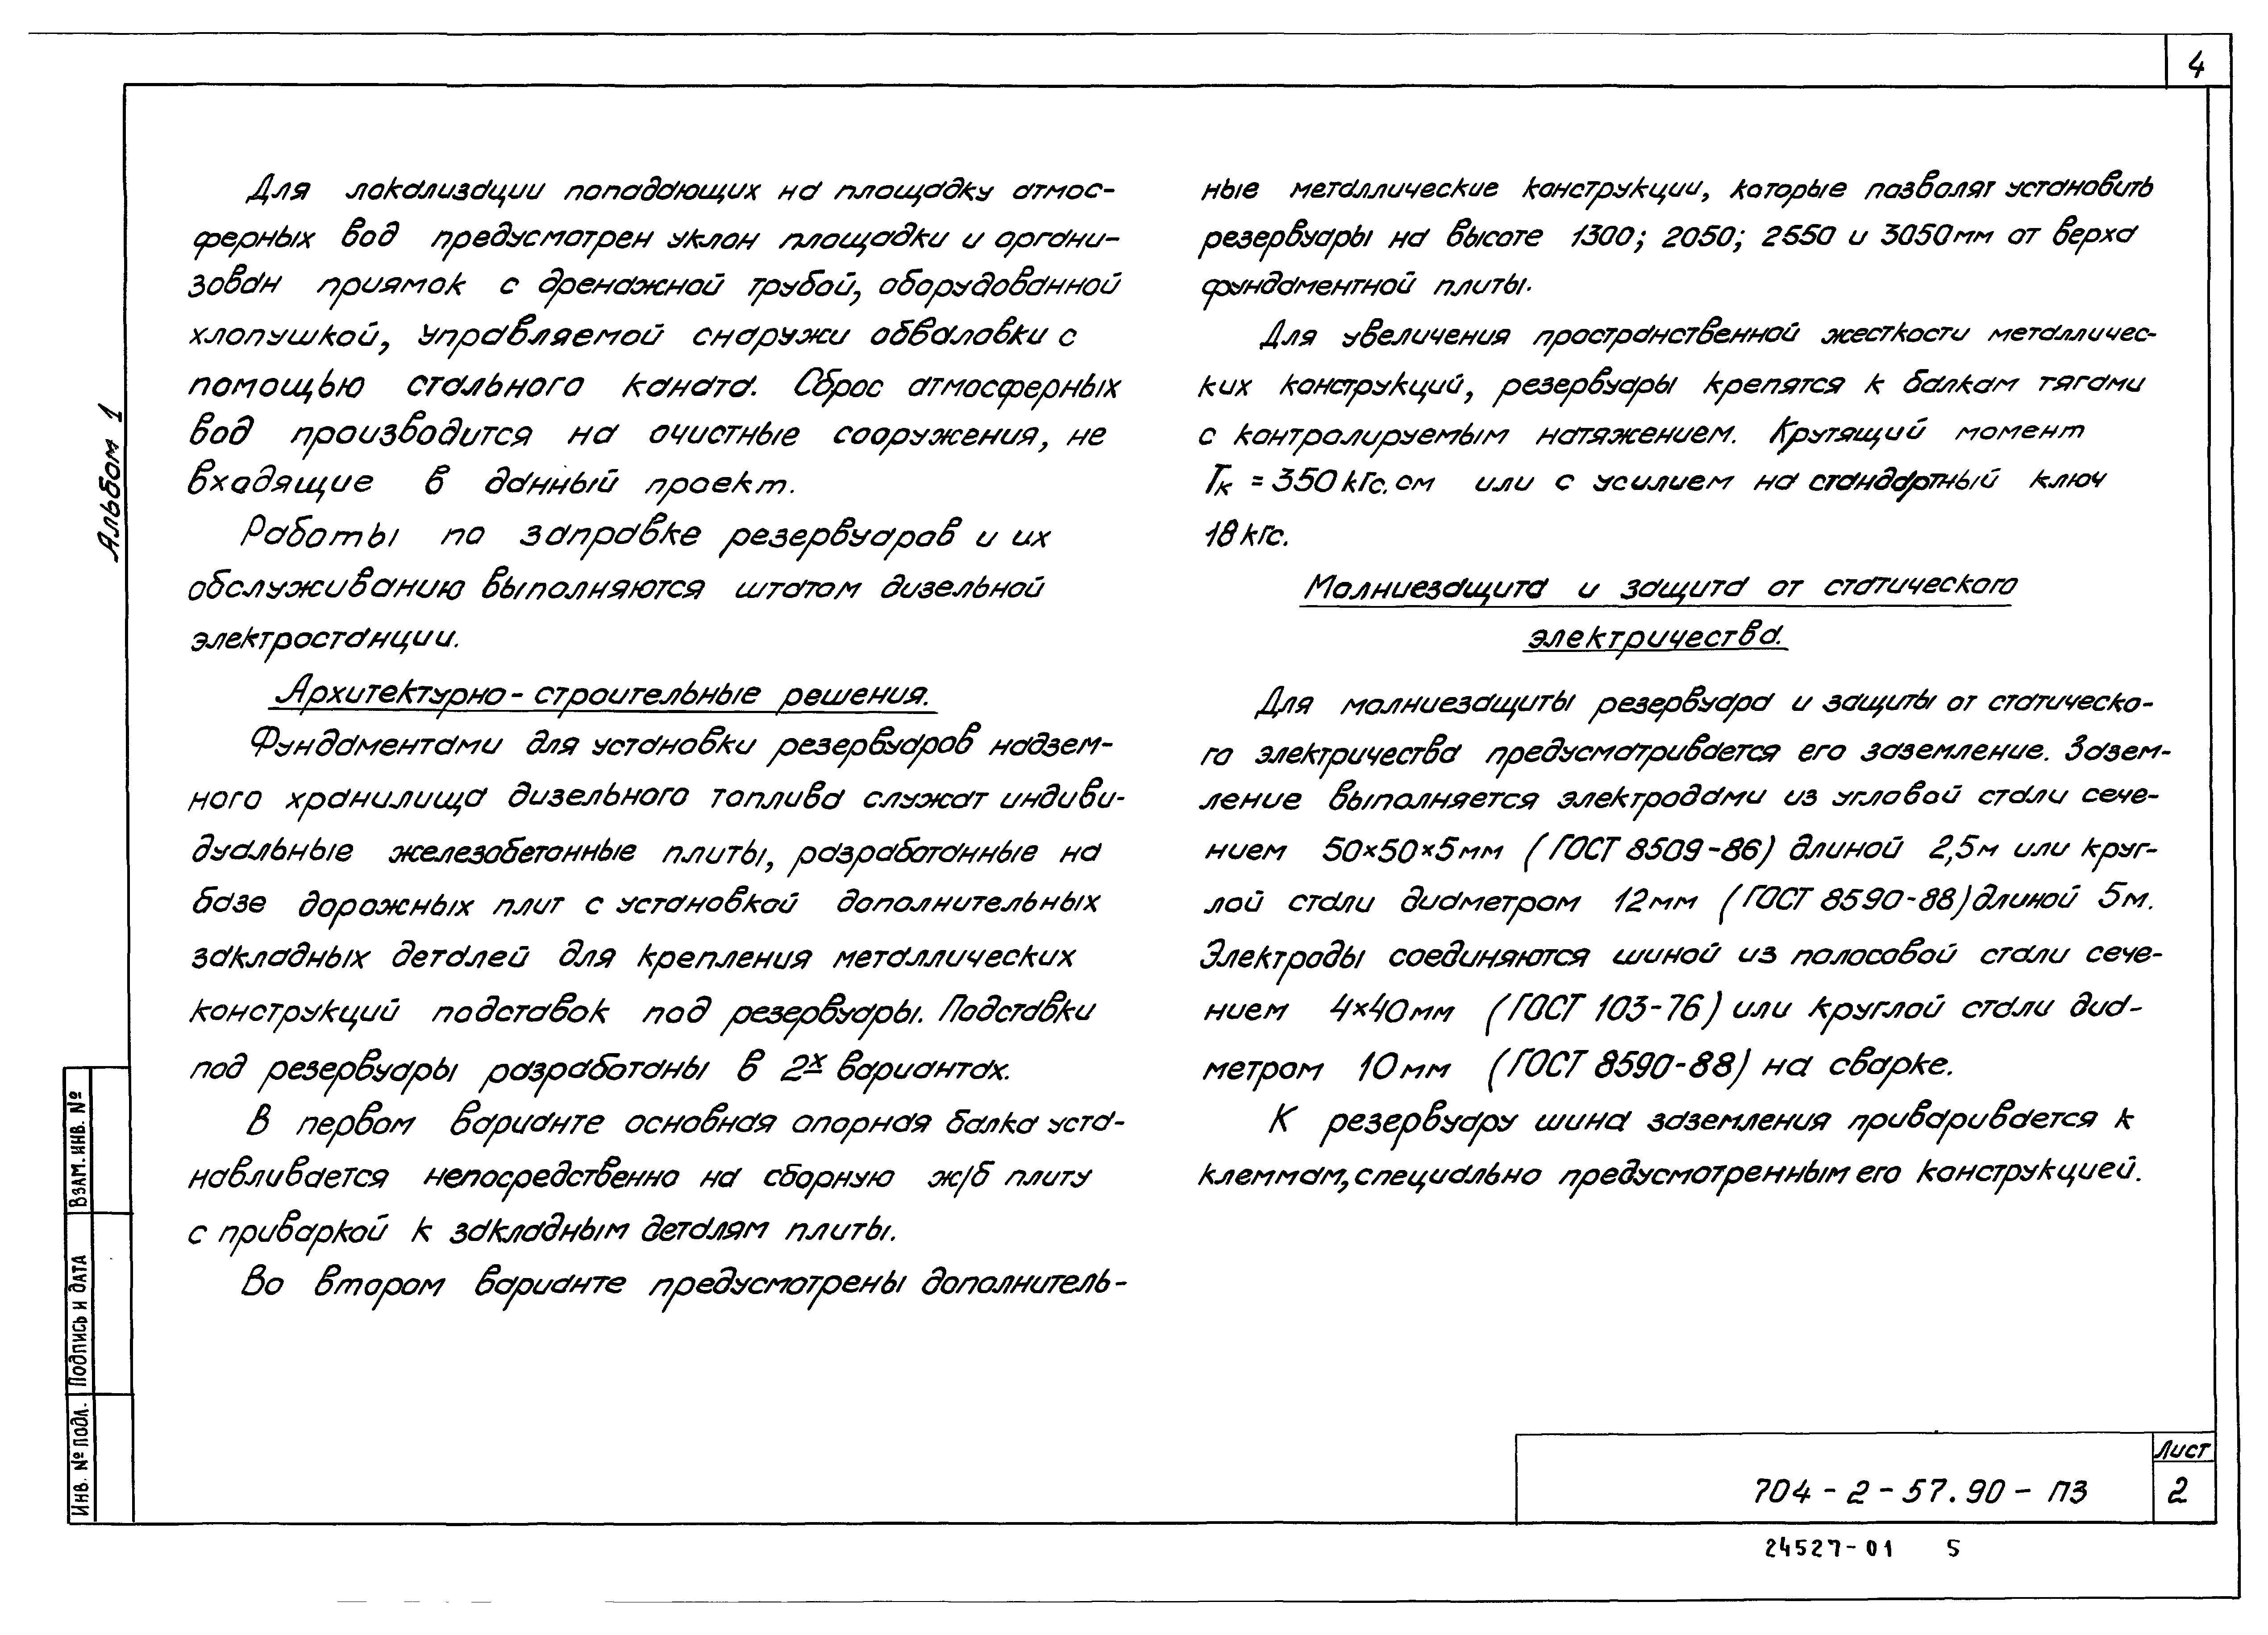 4
Альбом 1
Для локализации попадающих на площадку атмос-
ферных вод предусмотрен уклон площадки и органи-
зован приямок с дренажной трубой, оборудованной
хлопушкой, управляемой снаружи обваловки с
помощью стального каната. Сброс атмосферных
вод производится на очистные сооружения, не
входящие в данный проект.
Работы по заправке резервуаров и их
обслуживанию выполняются штатом дизельной
электростанции.
Архитектурно-строительные решения.
Фундаментами для установки резервуаров надзем-
ного хранилища дизельного топлива служат индиви-
дуальные железобетонные плиты, разработанные на
базе дорожных плит с установкой дополнительных
закладных деталей для крепления металлических
конструкций подставок под резервуары. Подставки
под резервуары разработаны в 2х вариантах.
В первом варианте основная опорная балка уста-
навливается непосредственно на сборную ж/б плиту
с приваркой к закладным деталям плиты.
Во втором варианте предусмотрены дополнитель-
ные металлические конструкции, которые позволят установить
резервуары на высоте 1300; 2050; 2550 и 3050мм от верха
фундаментной плиты.
Для увеличения пространственной жесткости металличес-
ких конструкций, резервуары крепятся к балкам тягами
с контролируемым натяжением. Крутящий момент
Тк = 350 кгс.см или с усилием на стандартный ключ
18 кгс.
Молниезащита и защита от статического
электричества.
Для молниезащиты резервуара и защиты от статическо-
го электричества предусматривается его заземление. Зазем-
ление выполняется электродами из угловой стали сече-
нием 50×50×5мм (ГОСТ 8509-86) длиной 2,5м или круг-
лой стали диаметром 12мм (ГОСТ 8590-88) длиной 5м.
Электроды соединяются шиной из полосовой стали сече-
нием 4×40мм (ГОСТ 103-76) или круглой стали диа-
метром 10мм (ГОСТ 8590-88) на сварке.
К резервуару шина заземления приваривается к
клеммам, специально предусмотренным его конструкцией.
Взам. инв. №
Подпись и дата
Инв. № подл.
704-2-57.90-ПЗ
Лист
2
24527-01 5